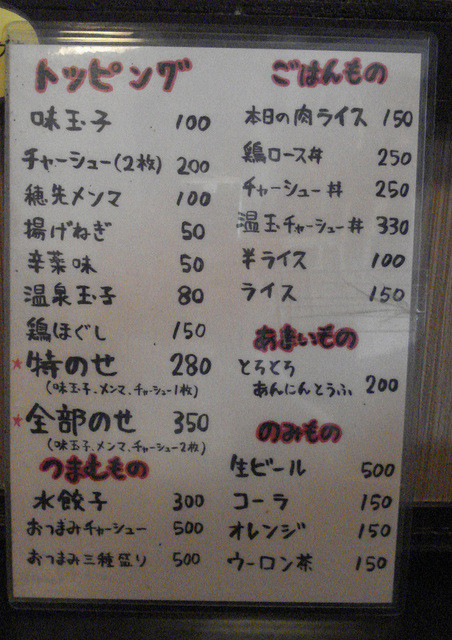 トッピング
味玉子 100
チャーシュー(2枚) 200
穂先メンマ 100
揚げねぎ 50
辛薬味 50
温泉玉子 80
鶏ほぐし 150
★特のせ 280
(味玉子、メンマ、チャーシュー1枚)
★全部のせ 350
(味玉子、メンマ、チャーシュー2枚)
つまむもの
水餃子 300
おつまみチャーシュー 500
おつまみ三種盛り 500
ごはんもの
本日の肉ライス 150
鶏ロース丼 250
チャーシュー丼 250
温玉チャーシュー丼 330
半ライス 100
ライス 150
あまいもの
とろとろ
あんにんとうふ 200
のみもの
生ビール 500
コーラ 150
オレンジ 150
ウーロン茶 150